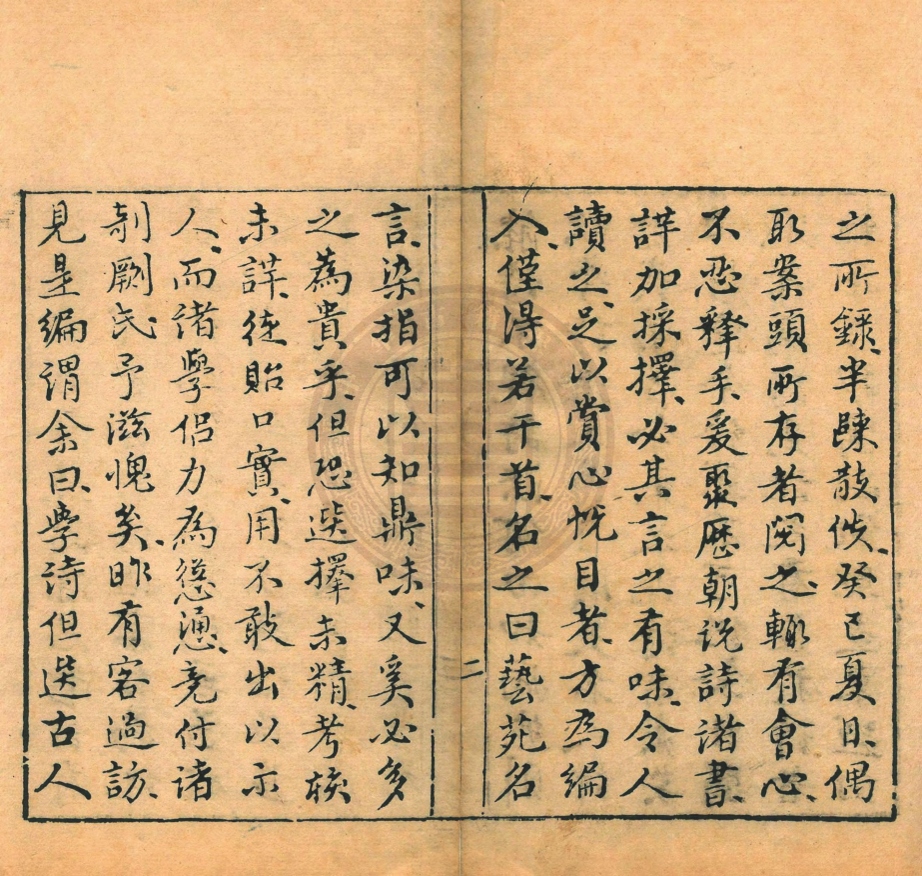 之所錄、半踈散佚、癸已夏日、偶
取案頭所存者閱之、輙有會心、
不忍釋手、爰聚歷朝説詩諸書、
詳加採擇、必其言之有味、令人
讀之、足以賞心悅目者、方為編
入、僅得若干首、名之曰藝苑名
二
言、染指可以知鼎味、又奚必多
之為貴乎、但恐選擇未精、考核
未詳、徒貽口實、用不敢出以示
人、而諸學侶力為慫慂、竟付諸
剞劂氏、予滋愧矣、昨有客過訪、
見是編謂余曰、學詩但選古人